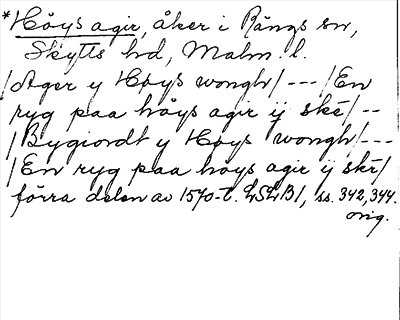 *Høys agir, åker i Rängs sn,
Skytts hd, Malm. l.
/Ager y Høys wongh/ --- /En
ryg paa høys agir ij ske/ --
/Bygiordt y Høys wongh/ ---
/En ryg paa høys agir ij ske/
förra delen av 1570-t. LSLB1, ss. 342, 344.
orig.